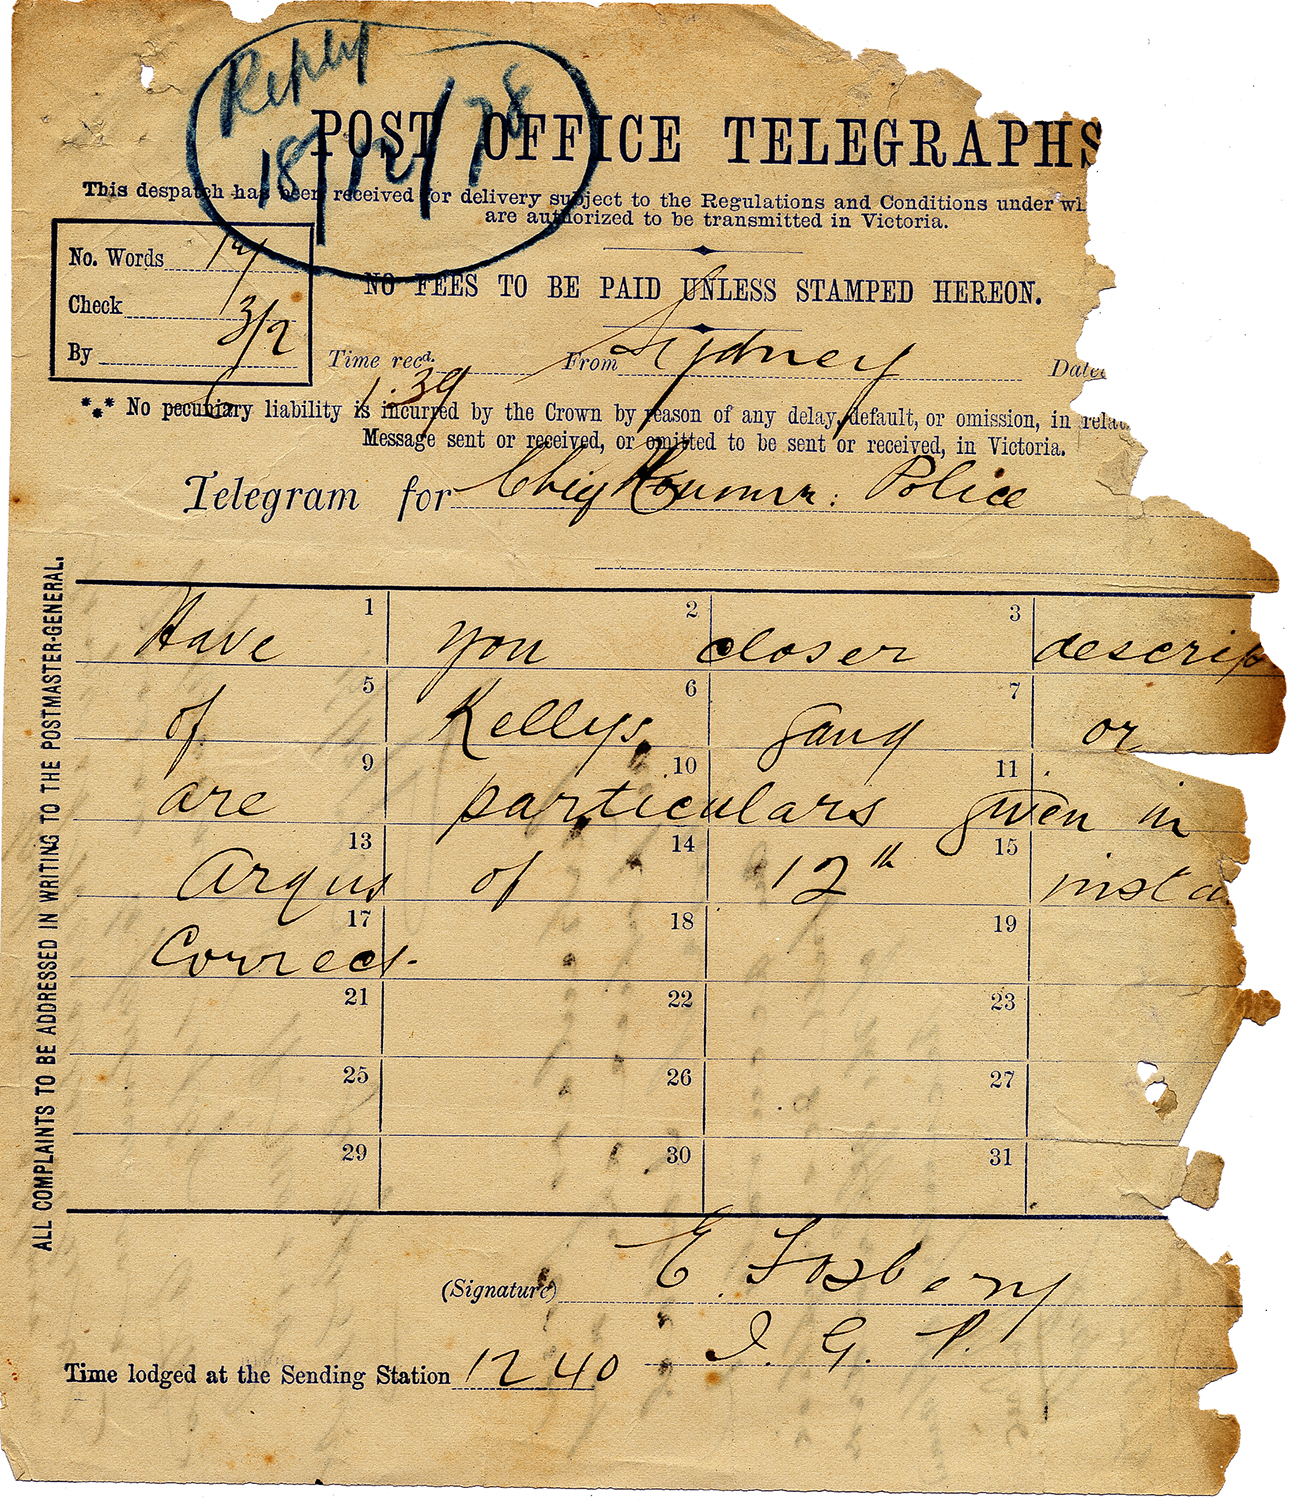 Reply
18/12/78
POST OFFICE TELEGRAPHS
This despatch has been received for delivery subject to the Regulations and Conditions under wh
are authorized to be transmitted in Victoria.
No. Words
Check 3/2
By
NO FEES TO BE PAID UNLESS STAMPED HEREON.
Time recd. 1.39 From Sydney Date
No pecuniary liability is incurred by the Crown by reason of any delay, default, or omission, in relat
Message sent or received, or omitted to be sent or received, in Victoria.
Telegram for Chief Commr: Police
ALL COMPLAINTS TO BE ADDRESSED IN WRITING TO THE POSTMASTER-GENERAL.
1 2 3
Have you closer descrip
5 6 7
of Kellys gang or
9 10 11
are particulars given in
13 14 15
Argus of 12th inst a
17 18 19
Correct.
21 22 23
25 26 27
29 30 31
(Signature) E. Fosbery
I. G. P.
Time lodged at the Sending Station 12 40